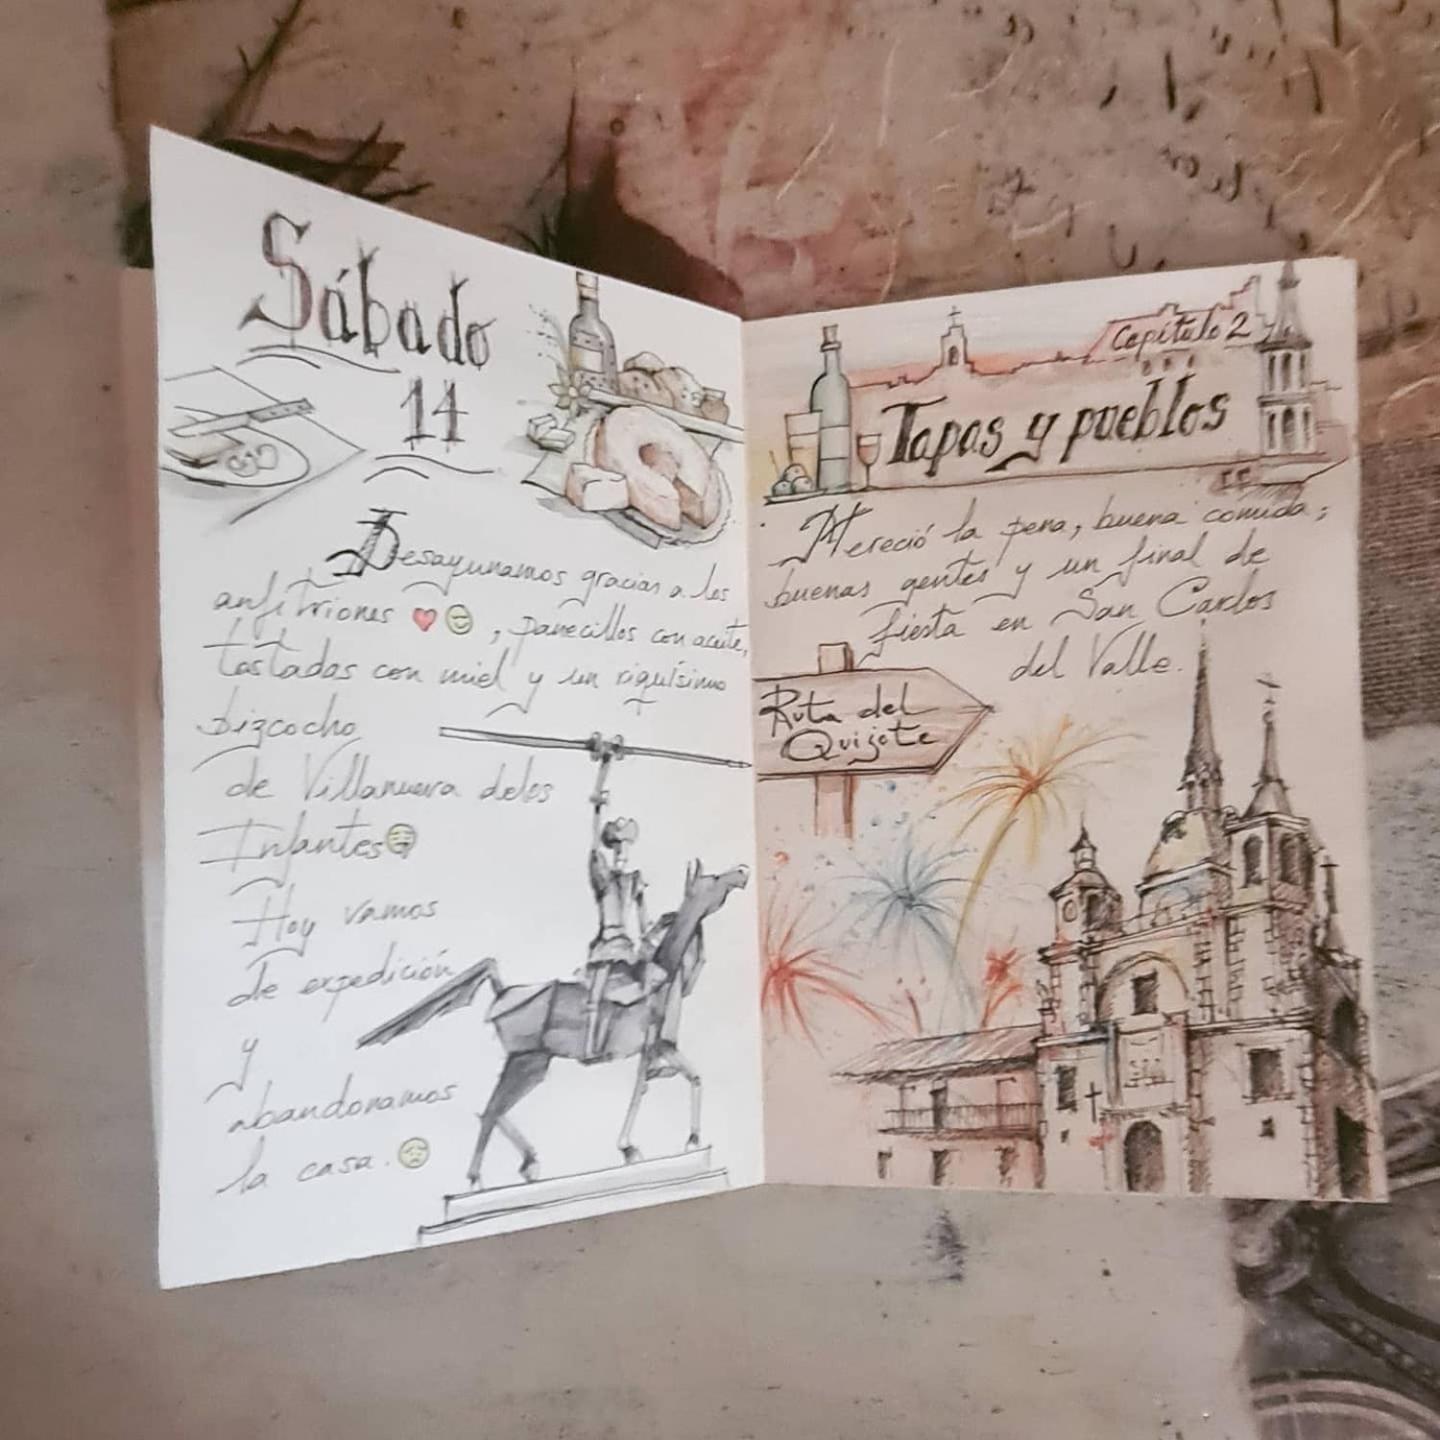 Sábado
14
Desayunamos gracias a los
anfitriones ❤️😊, panecillos con aceite,
tostadas con miel y un riquísimo
bizcocho
de Villanueva delos
Infantes
Hoy vamos
de expedición
y
abandonamos
la casa. ☹️
Capítulo 2
Tapas y pueblos
Mereció la pena, buena comida;
buenas gentes y un final de
fiesta en San Carlos
del Valle.
Ruta del
Quijote